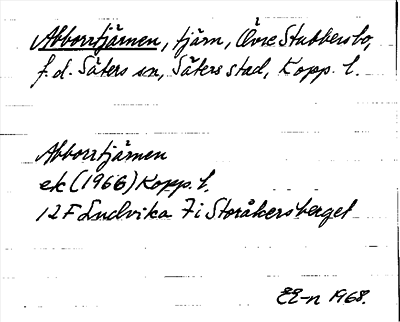 Abborrtjärnen, tjärn, Övre Stubbersbo,
f.d. Säters sn, Säters stad, Kopp. l.
Abborrtjärnen
ek (1966) Kopp. l.
12F Ludvika 7i Storåkersberget
EE-n 1968.